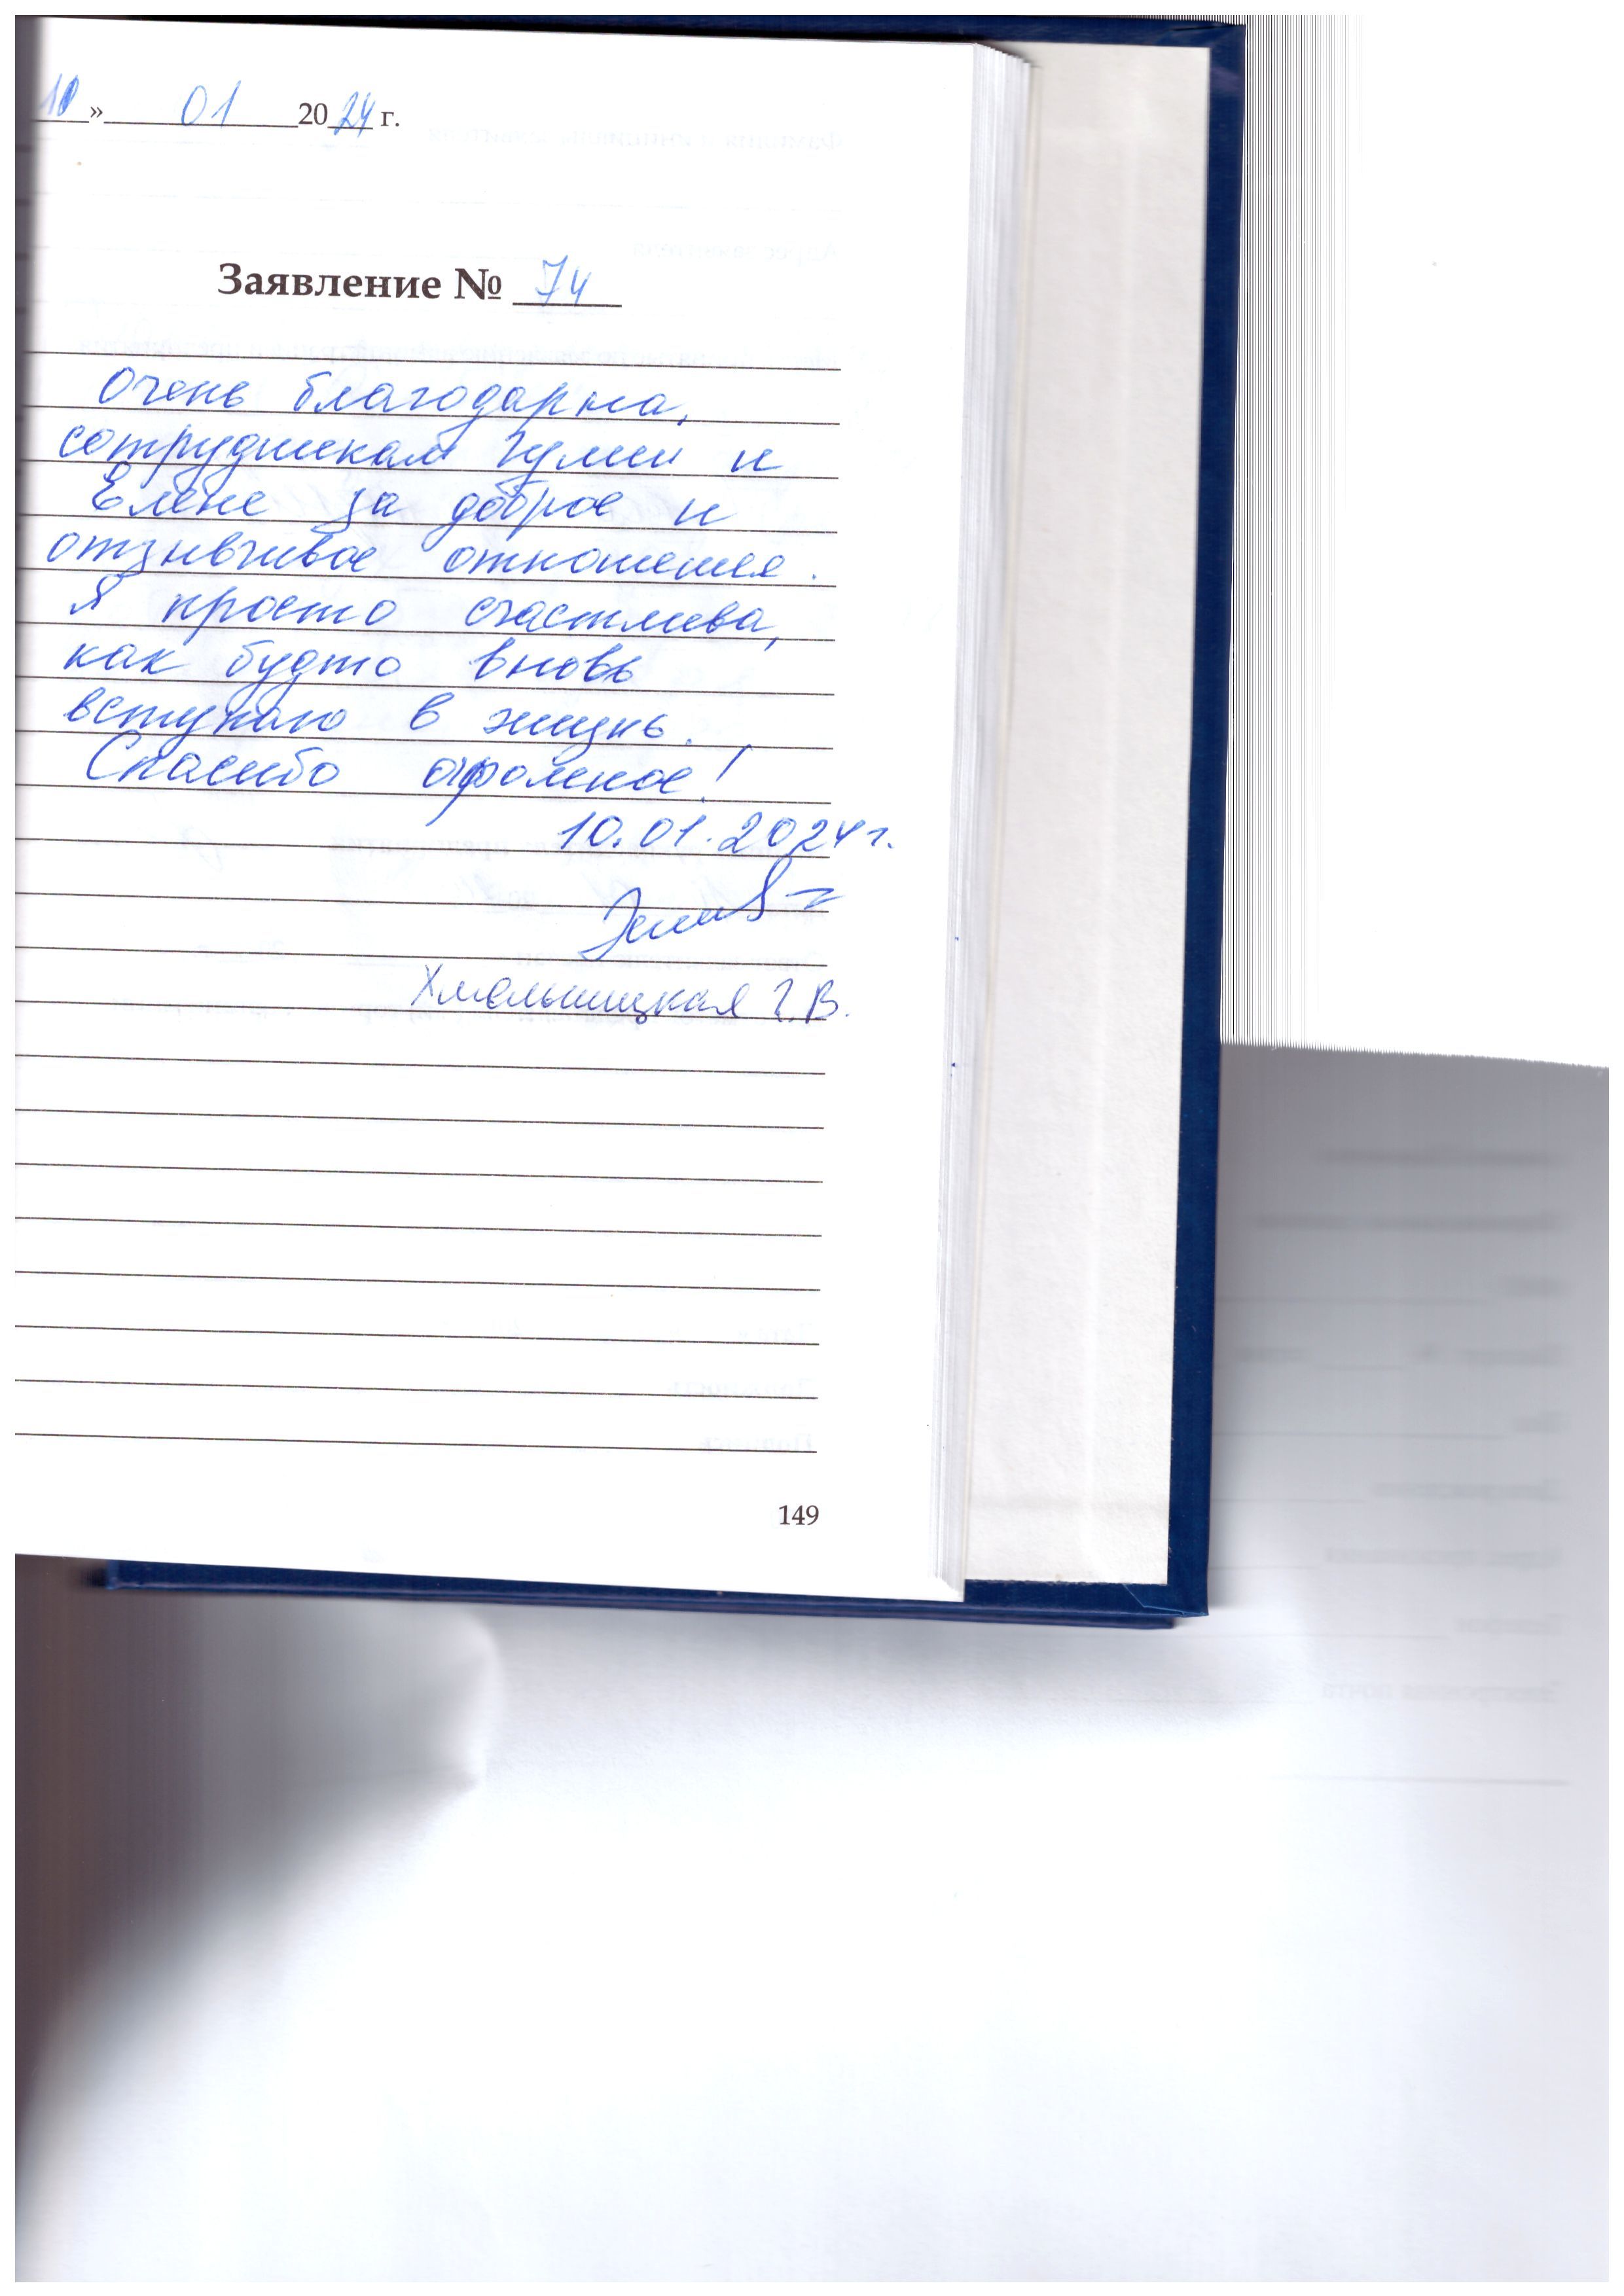 10 » 01 2024 г.
Заявление № 74
Очень благодарна,
сотрудникам и
Елене за доброе и
отзывчивое отношения.
Я просто счастлива,
как будто вновь
вступаю в жизнь.
Спасибо огромное!
10.01.2024 г.
Хмельницкая Г.В.
149